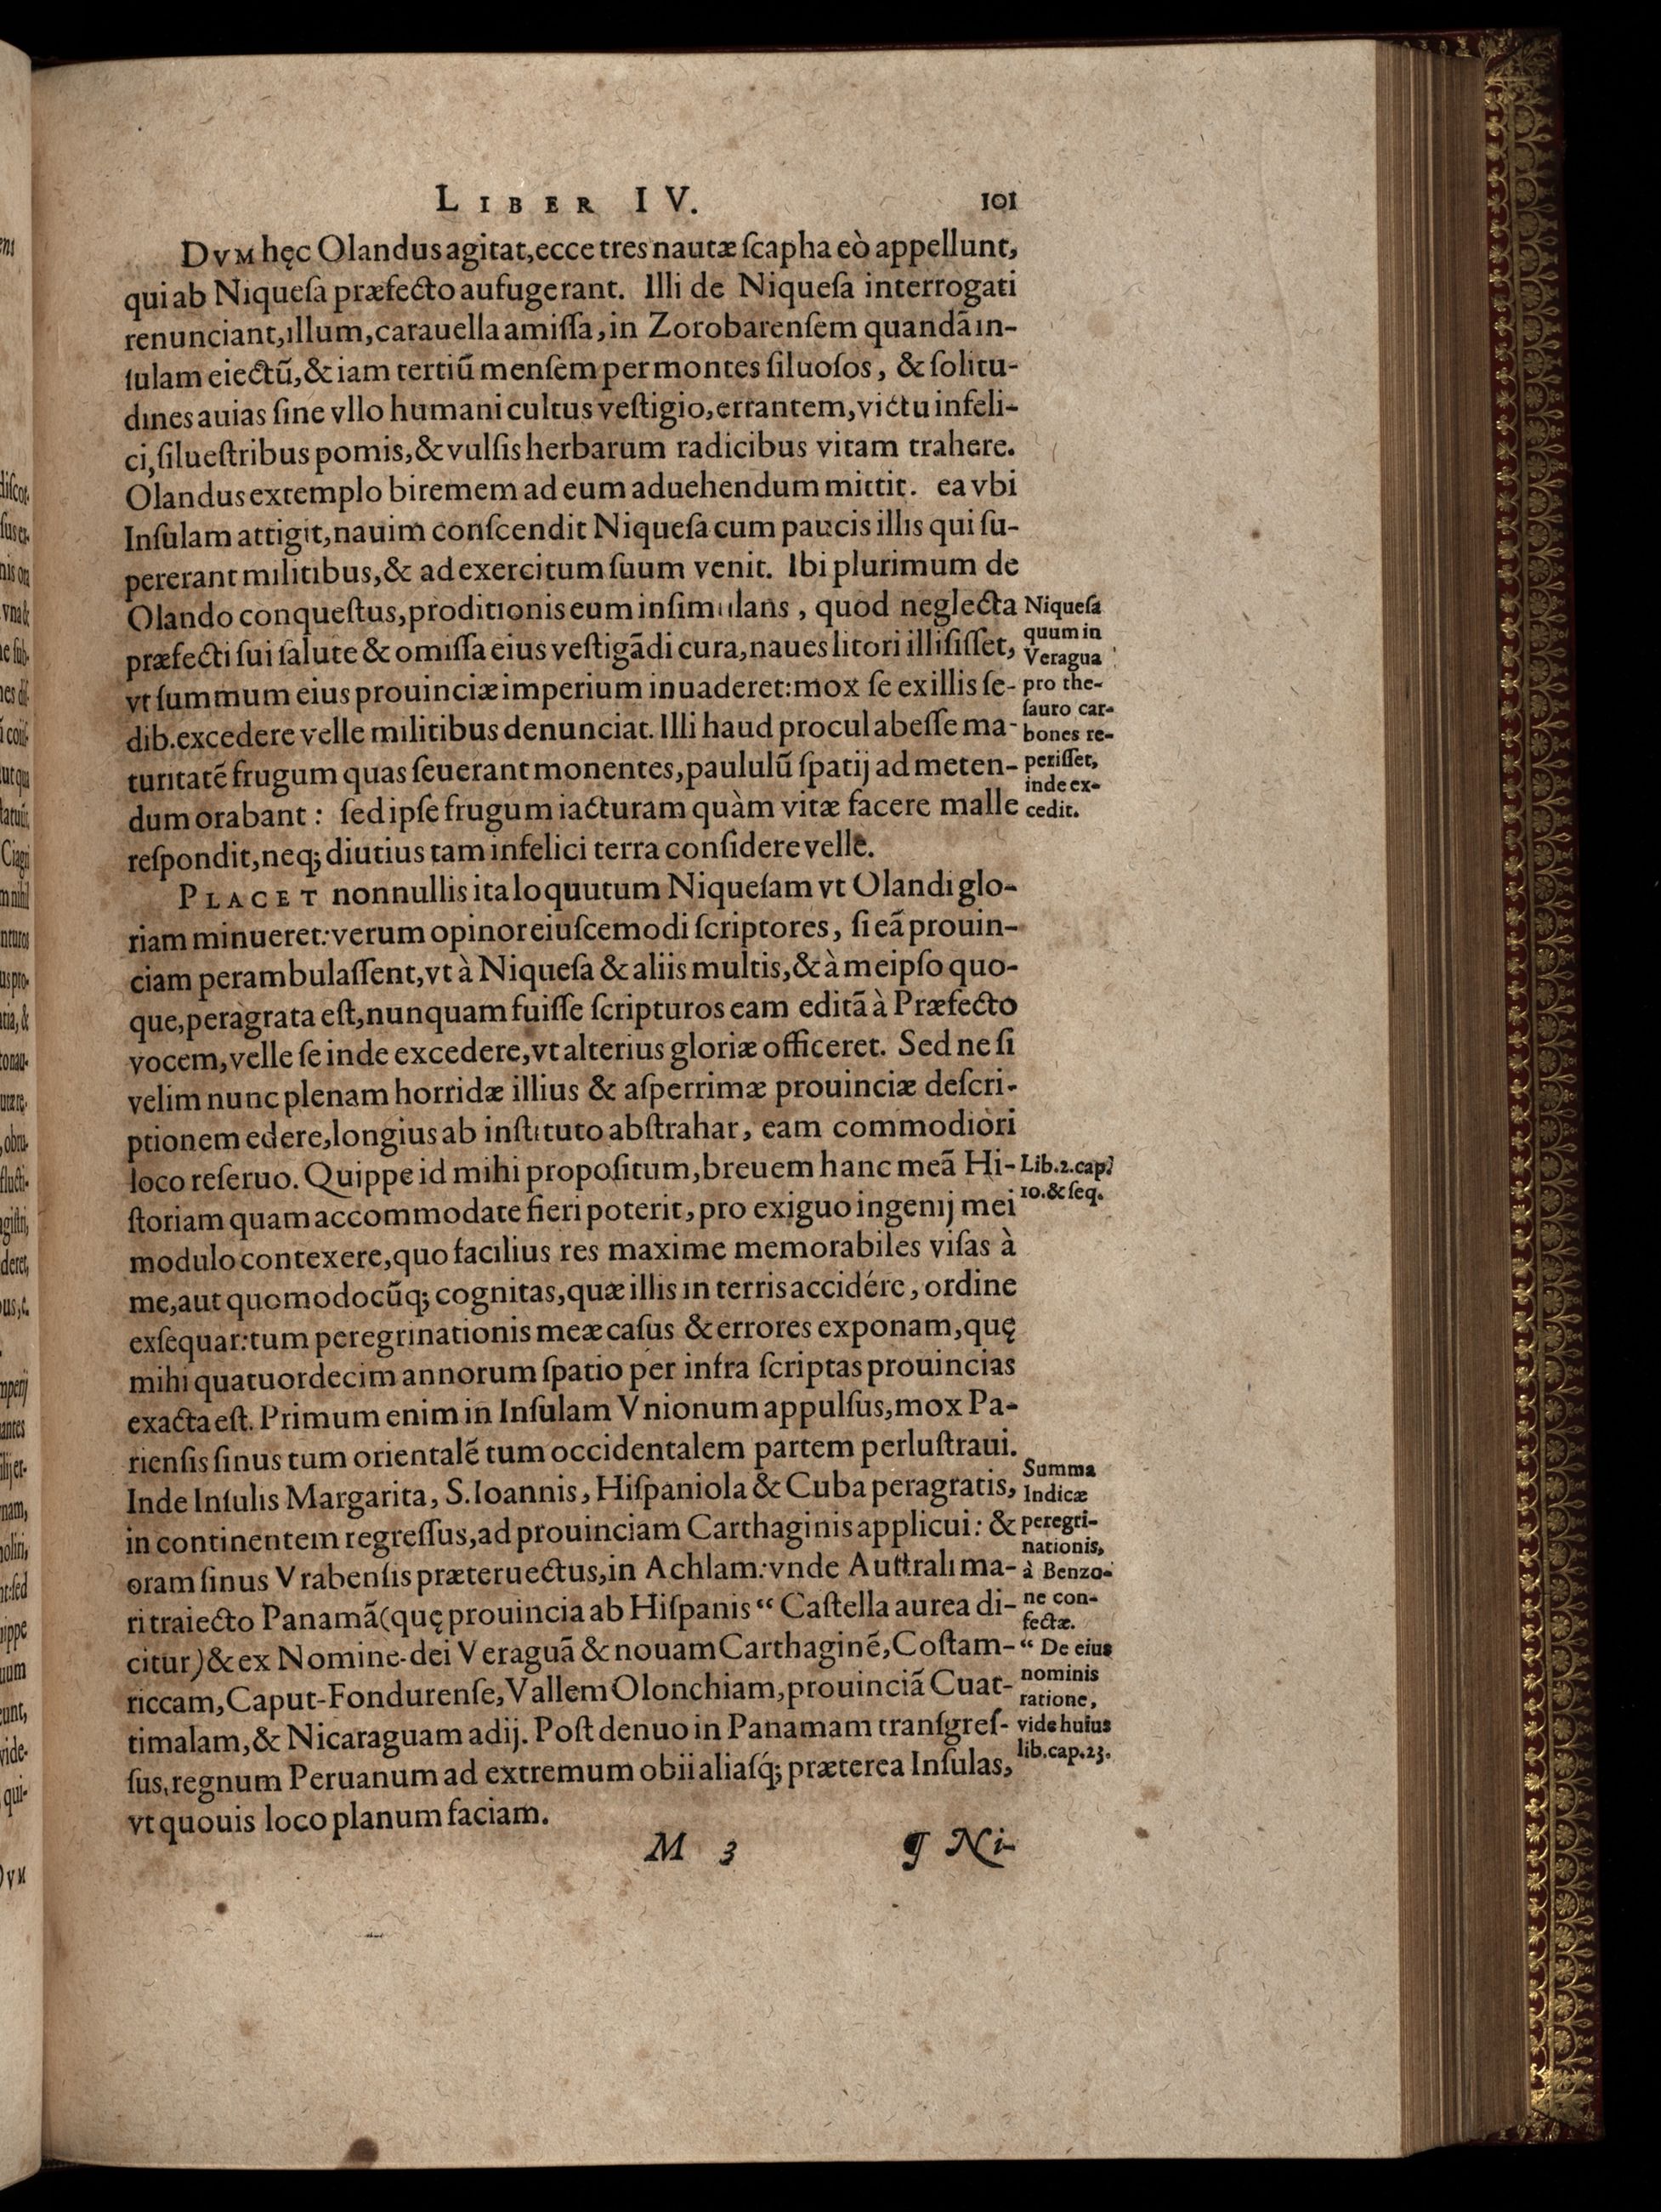 LIBER IV. 101
DVM hęc Olandus agitat, ecce tres nautæ ſcapha eò appellunt,
qui ab Niqueſa præfecto aufugerant. Illi de Niqueſa interrogati
renunciant, illum, carauella amiſſa, in Zorobarenſem quandã in-
ſulam eiectũ, & iam tertiũ menſem per montes ſiluoſos, & ſolitu-
dines auias ſine vllo humani cultus veſtigio, errantem, victu infeli-
ci, ſilueſtribus pomis, & vulſis herbarum radicibus vitam trahere.
Olandus extemplo biremem ad eum aduehendum mittit. ea vbi
Inſulam attigit, nauim conſcendit Niqueſa cum paucis illis qui ſu-
pererant militibus, & ad exercitum ſuum venit. Ibi plurimum de
Olando conqueſtus, proditionis eum inſimulans, quod neglecta
præfecti ſui ſalute & omiſſa eius veſtigãdi cura, naues litori illiſiſſet,
vt ſummum eius prouinciæ imperium inuaderet: mox ſe ex illis ſe-
dib. excedere velle militibus denunciat. Illi haud procul abeſſe ma-
turitatẽ frugum quas ſeuerant monentes, paululũ ſpatij ad meten-
dum orabant: ſed ipſe frugum iacturam quàm vitæ facere malle
reſpondit, neq; diutius tam infelici terra conſidere velle.
Niqueſa
quum in
Veragua
pro the-
ſauro car-
bones re-
periſſet,
inde ex-
cedit.
PLACET nonnullis ita loquutum Niqueſam vt Olandi glo-
riam minueret: verum opinor eiuſcemodi ſcriptores, ſi eã prouin-
ciam perambulaſſent, vt à Niqueſa & aliis multis, & à meipſo quo-
que, peragrata eſt, nunquam fuiſſe ſcripturos eam editã à Præfecto
vocem, velle ſe inde excedere, vt alterius gloriæ officeret. Sed ne ſi
velim nunc plenam horridæ illius & aſperrimæ prouinciæ deſcri-
ptionem edere, longius ab inſtituto abſtrahar, eam commodiori
loco reſeruo. Quippe id mihi propoſitum, breuem hanc meã Hi-
ſtoriam quam accommodate fieri poterit, pro exiguo ingenij mei
modulo contexere, quo facilius res maxime memorabiles viſas à
me, aut quomodocũq; cognitas, quæ illis in terris accidére, ordine
exſequar: tum peregrinationis meæ caſus & errores exponam, quę
mihi quatuordecim annorum ſpatio per infra ſcriptas prouincias
exacta eſt. Primum enim in Inſulam Vnionum appulſus, mox Pa-
rienſis ſinus tum orientalẽ tum occidentalem partem perluſtraui.
Inde Inſulis Margarita, S. Ioannis, Hiſpaniola & Cuba peragratis,
in continentem regreſſus, ad prouinciam Carthaginis applicui: &
oram ſinus Vrabenſis præteruectus, in Achlam: vnde Auſtrali ma-
ri traiecto Panamã (quę prouincia ab Hiſpanis “ Caſtella aurea di-
citur) & ex Nomine-dei Veraguã & nouam Carthaginẽ, Coſtam-
riccam, Caput-Fondurenſe, Vallem Olonchiam, prouinciã Cuat-
timalam, & Nicaraguam adij. Poſt denuo in Panamam tranſgreſ-
ſus, regnum Peruanum ad extremum obii aliaſq́; præterea Inſulas,
vt quouis loco planum faciam.
Lib. 2. cap.
10. & ſeq.
Summa
Indicæ
peregri-
nationis,
à Benzo-
ne con-
fectæ.
“ De eius
nominis
ratione,
vide huius
lib. cap. 23.
M 3 ¶ Ni-